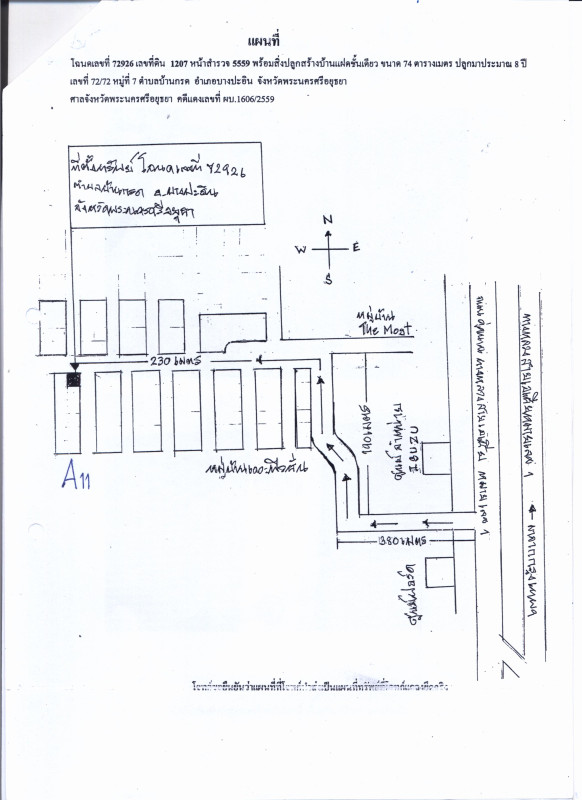 แผนที่
โฉนดเลขที่ 72926 เลขที่ดิน 1207 หน้าสำรวจ 5559 พร้อมสิ่งปลูกสร้างบ้านแฝดชั้นเดียว ขนาด 74 ตารางเมตร ปลูกมาประมาณ 8 ปี
เลขที่ 72/72 หมู่ที่ 7 ตำบลบ้านกรด อำเภอบางปะอิน จังหวัดพระนครศรีอยุธยา
ศาลจังหวัดพระนครศรีอยุธยา คดีแดงเลขที่ ผบ.1606/2559
ที่ตั้งทรัพย์ โฉนดเลขที่ 72926
ตำบลบ้านกรด อ.บางปะอิน
จังหวัดพระนครศรีอยุธยา
N
W
E
S
หมู่บ้าน
The Most
230 เมตร
190 เมตร
380 เมตร
หมู่บ้านเดอะ
A11
ศูนย์
ISUZU
ศูนย์
ทางหลวงสายเอเชียหมายเลข 1
มาจากกรุงเทพฯ
ทางหลวงสายเอเชีย หมายเลข 1